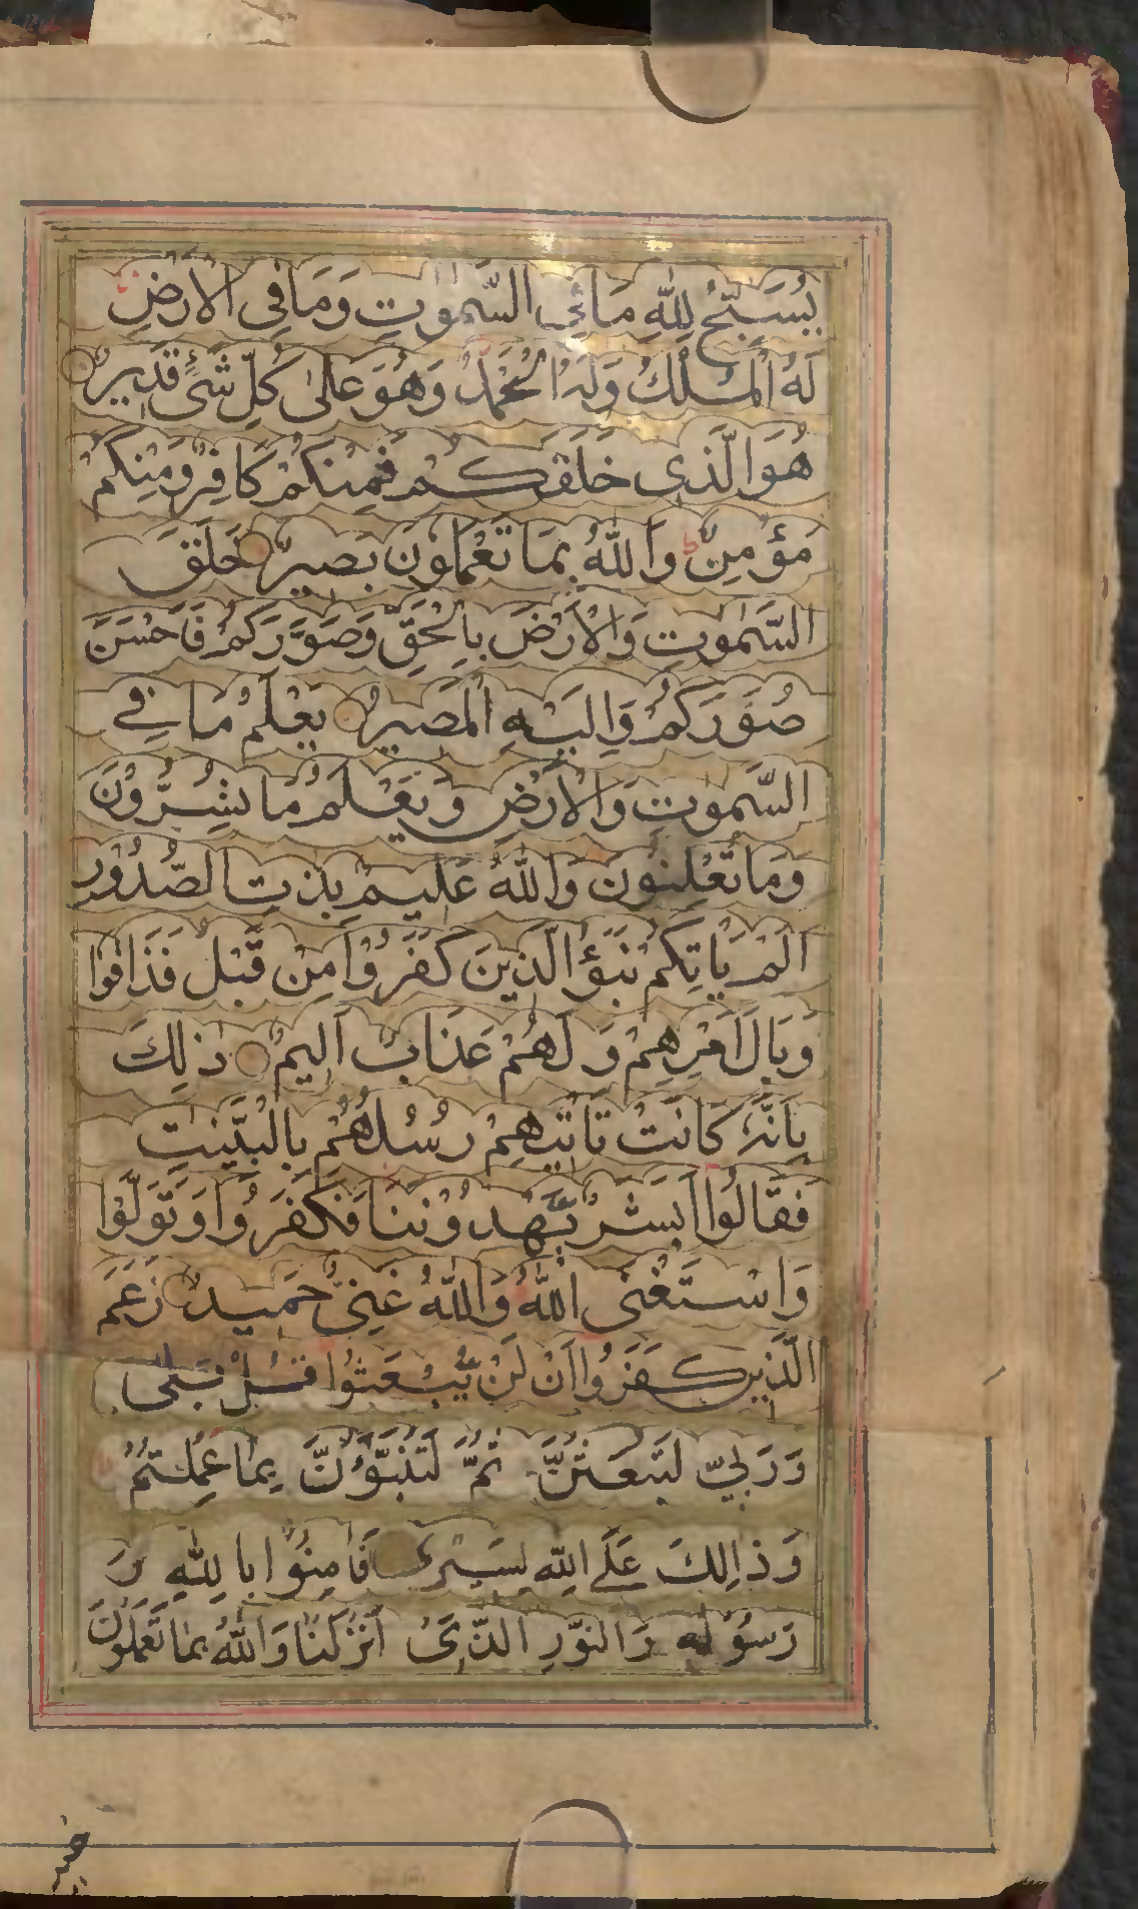 يُسَبِّحُ لِلّٰهِ مَا فِى السَّمٰوٰتِ وَمَا فِى الْاَرْضِ
لَهُ الْمُلْكُ وَلَهُ الْحَمْدُ وَهُوَ عَلٰى كُلِّ شَىْءٍ قَدِيْرٌ
هُوَ الَّذِى خَلَقَكُمْ فَمِنْكُمْ كَافِرٌ وَمِنْكُمْ
مُؤْمِنٌ ط وَاللّٰهُ بِمَا تَعْمَلُونَ بَصِيْرٌ خَلَقَ
السَّمٰوٰتِ وَالْاَرْضَ بِالْحَقِّ وَصَوَّرَكُمْ فَاَحْسَنَ
صُوَرَكُمْ وَاِلَيْهِ الْمَصِيْرُ يَعْلَمُ مَا فِى
السَّمٰوٰتِ وَالْاَرْضِ وَيَعْلَمُ مَا تُسِرُّوْنَ
وَمَا تُعْلِنُوْنَ وَاللّٰهُ عَلِيْمٌ بِذٰتِ الصُّدُوْرِ
اَلَمْ يَاْتِكُمْ نَبَؤُا الَّذِيْنَ كَفَرُوْا مِنْ قَبْلُ فَذَاقُوْا
وَبَالَ اَمْرِهِمْ وَلَهُمْ عَذَابٌ اَلِيْمٌ ذٰلِكَ
بِاَنَّهُ كَانَتْ تَاْتِيْهِمْ رُسُلُهُمْ بِالْبَيِّنٰتِ
فَقَالُوْا اَبَشَرٌ يَّهْدُوْنَنَا فَكَفَرُوْا وَتَوَلَّوْا
وَاسْتَغْنَى اللّٰهُ وَاللّٰهُ غَنِىٌّ حَمِيْدٌ زَعَمَ
الَّذِيْنَ كَفَرُوْا اَنْ لَنْ يُّبْعَثُوْا قُلْ بَلٰى
وَرَبِّىْ لَتُبْعَثُنَّ ثُمَّ لَتُنَبَّؤُنَّ بِمَا عَمِلْتُمْ
وَذَالِكَ عَلَى اللّٰهِ يَسِيْرٌ فَاٰمِنُوْا بِاللّٰهِ وَ
رَسُوْلِهٖ وَالنُّوْرِ الَّذِىْ اَنْزَلْنَا وَاللّٰهُ بِمَا تَعْمَلُوْنَ
خبير